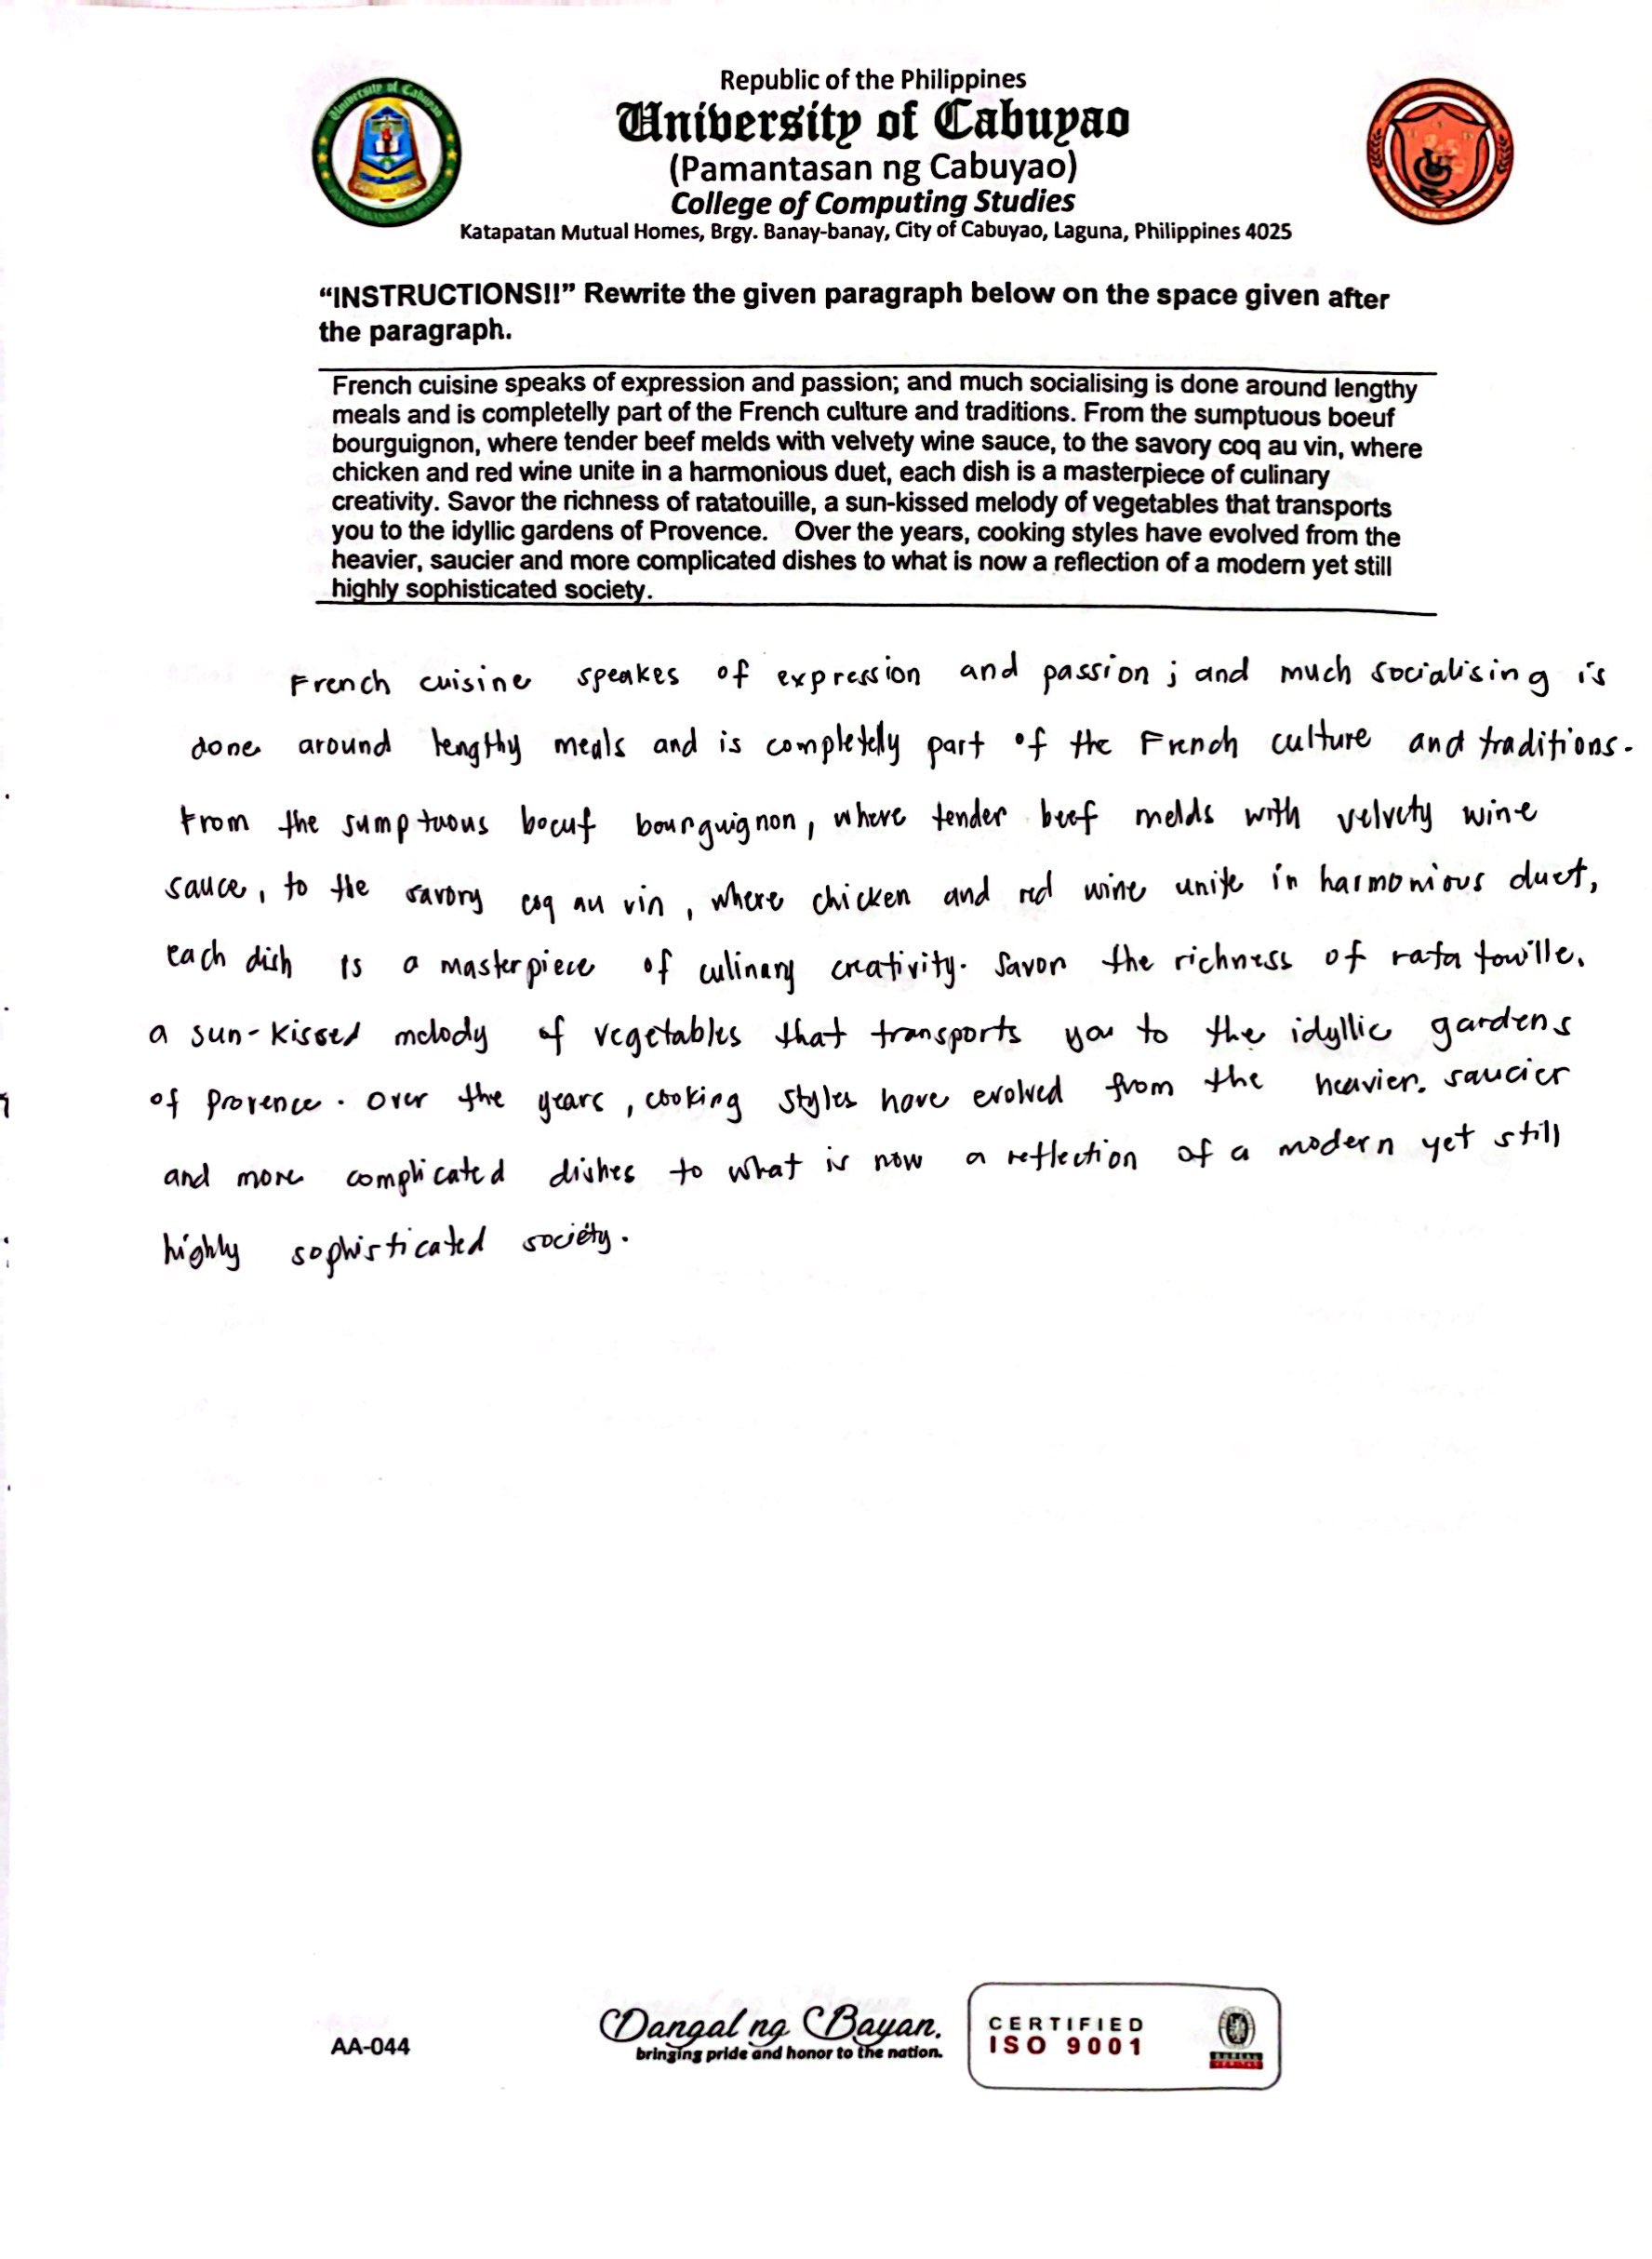 Republic of the Philippines
University of Cabuyao
(Pamantasan ng Cabuyao)
College of Computing Studies
Katapatan Mutual Homes, Brgy. Banay-banay, City of Cabuyao, Laguna, Philippines 4025
“INSTRUCTIONS!!” Rewrite the given paragraph below on the space given after
the paragraph.
French cuisine speaks of expression and passion; and much socialising is done around lengthy
meals and is completelly part of the French culture and traditions. From the sumptuous boeuf
bourguignon, where tender beef melds with velvety wine sauce, to the savory coq au vin, where
chicken and red wine unite in a harmonious duet, each dish is a masterpiece of culinary
creativity. Savor the richness of ratatouille, a sun-kissed melody of vegetables that transports
you to the idyllic gardens of Provence. Over the years, cooking styles have evolved from the
heavier, saucier and more complicated dishes to what is now a reflection of a modern yet still
highly sophisticated society.
French cuisine speakes of expression and passion ; and much socialising is
done around lengthy meals and is completely part of the French culture and traditions.
From the sumptuous boeuf bourguignon, where tender beef melds with velvety wine
sauce, to the savory coq au vin, where chicken and red wine unite in harmonious duet,
each dish is a masterpiece of culinary creativity. Savor the richness of rata touille.
a sun-kissed melody of vegetables that transports you to the idyllic gardens
of provence. Over the years, cooking styles have evolved from the heavier. saucier
and more complicated dishes to what is now a reflection of a modern yet still
highly sophisticated society.
AA-044
Dangal ng Bayan.
bringing pride and honor to the nation.
CERTIFIED
ISO 9001